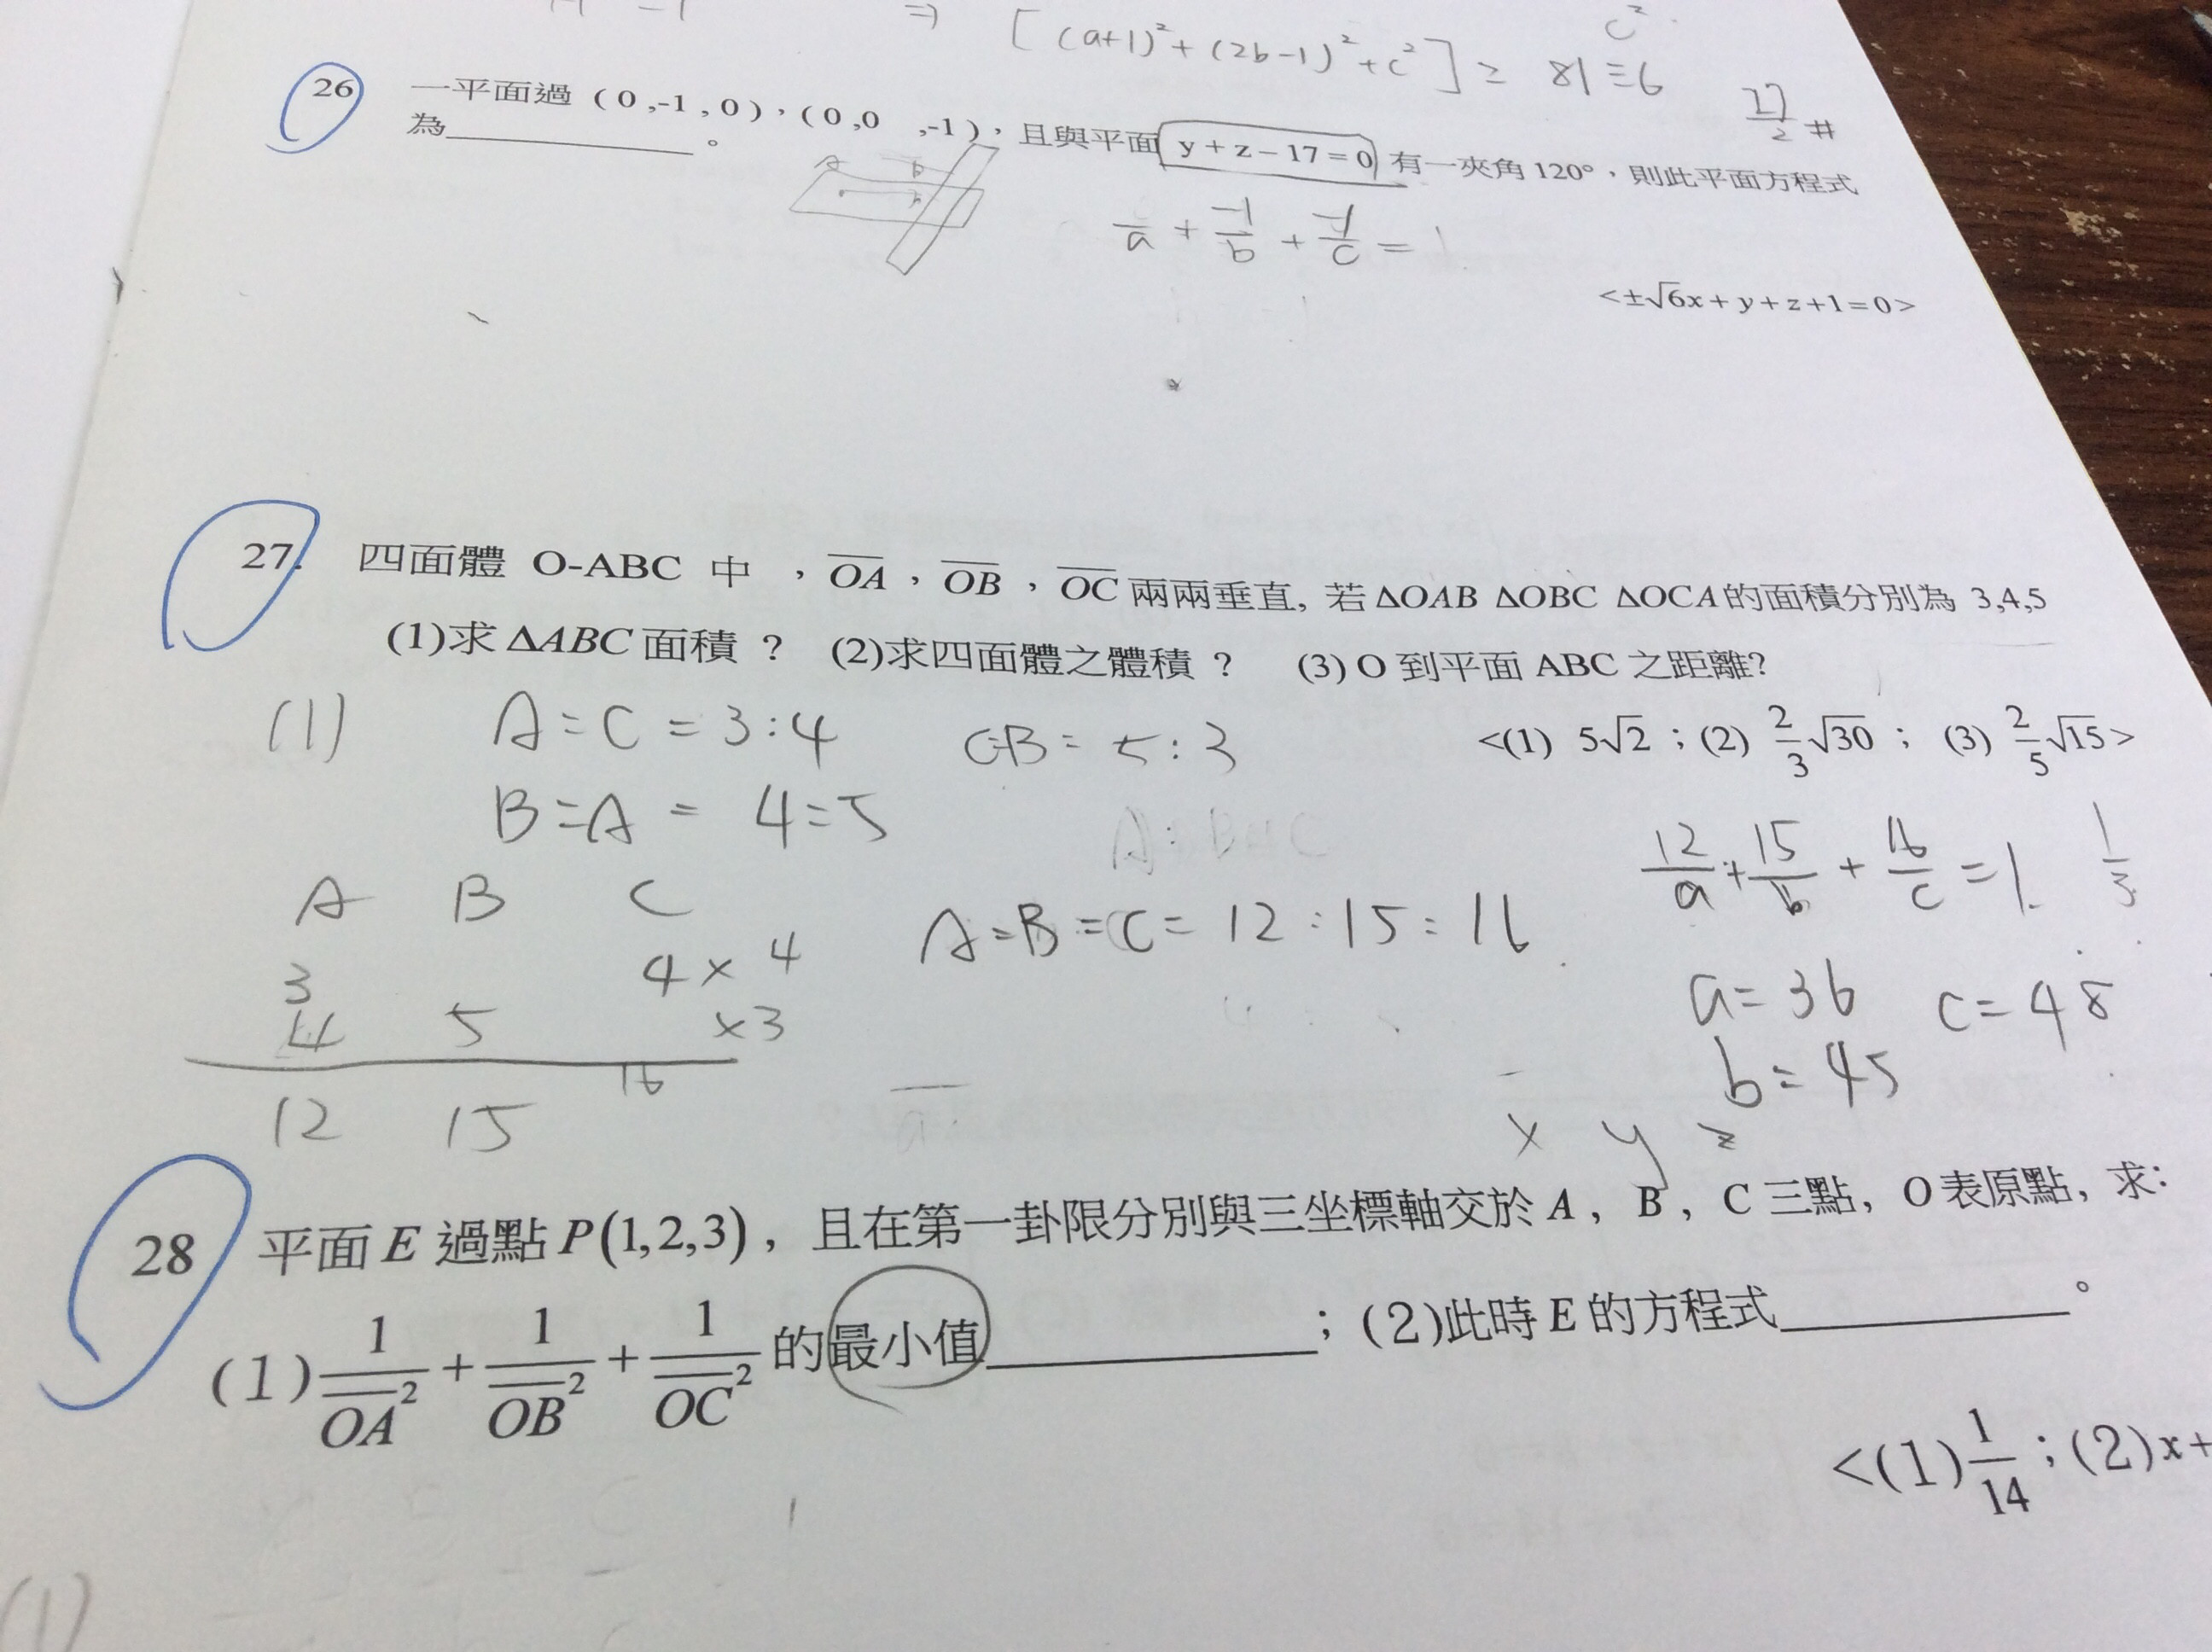 ⇒ [(a+1)²+(2b-1)²+c²] ≥ 81 ≡6
c²
17/2 #
26 一平面過 (0,-1,0),(0,0 ,-1),且與平面 y+z-17=0 有一夾角120°,則此平面方程式
為__________。
A
a + -1/b + -1/c = 1
<±√6x+y+z+1=0>
27. 四面體 O-ABC 中 ,\overline{OA},\overline{OB},\overline{OC} 兩兩垂直, 若 ΔOAB ΔOBC ΔOCA的面積分別為 3,4,5
(1)求 ΔABC 面積 ? (2)求四面體之體積 ? (3) O 到平面 ABC 之距離?
<(1) 5√2 ; (2) 2/3√30 ; (3) 2/5√15>
(1) A=C=3:4 CB=5:3
B=A=4=5
A B C
3 4×4
4 5 ×3
12 15 16
A=B=C=12:15:16
12/a+15/b+16/c=1. 1/3
a=36 c=48
b=45
x y z
28 平面 E 過點 P(1,2,3),且在第一卦限分別與三坐標軸交於 A, B, C 三點, O 表原點, 求:
(1) 1/\overline{OA}² + 1/\overline{OB}² + 1/\overline{OC}² 的最小值__________;(2)此時 E 的方程式__________。
<(1)1/14;(2)x+
(1)